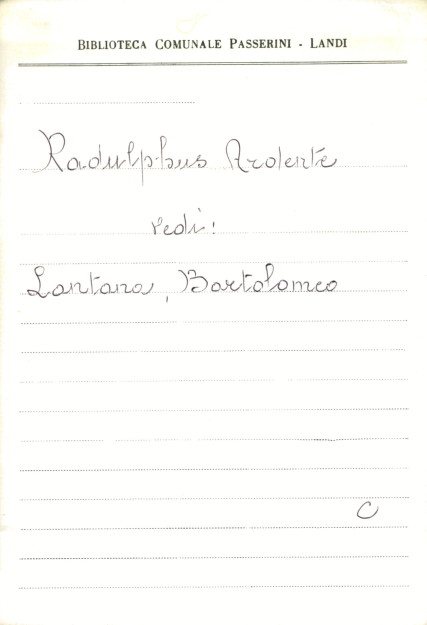 BIBLIOTECA COMUNALE PASSERINI - LANDI
Radulphus Ardente
vedi:
Lantana, Bartolomeo
C